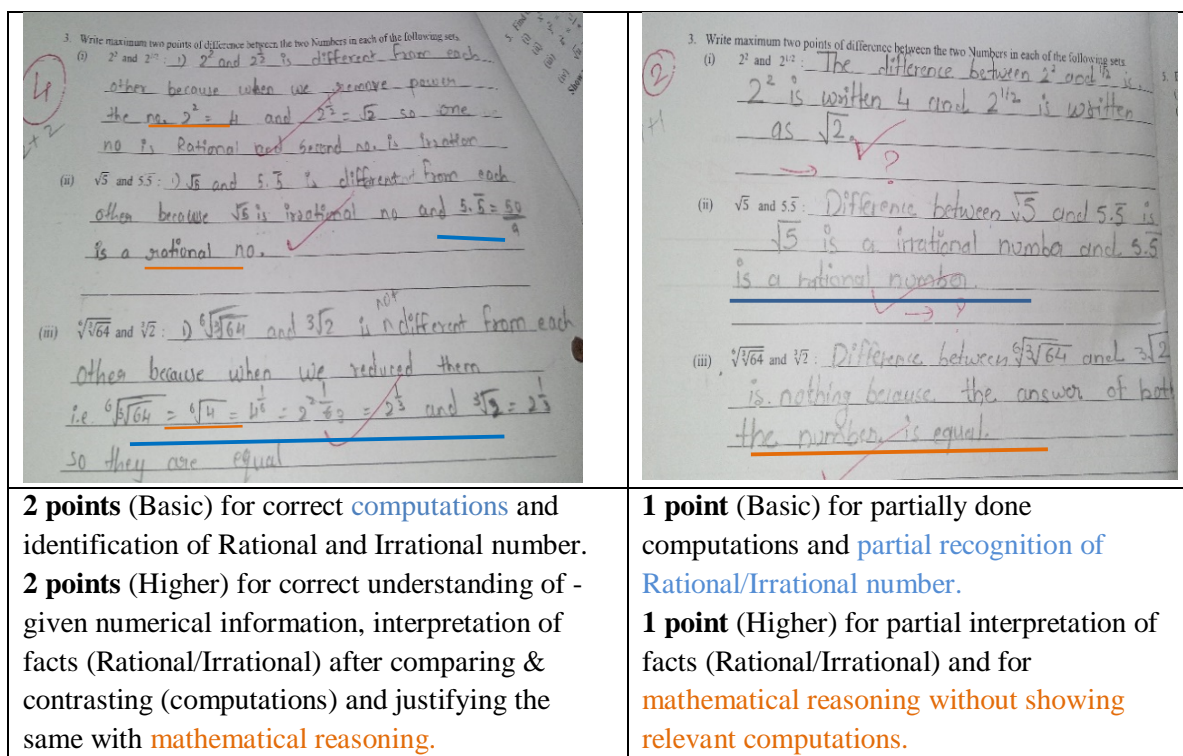 3. Write maximum two points of difference between the two Numbers in each of the following sets
(i) 2² and 2^1/2 : 1) 2² and 2^½ is different from each
other because when we remove power
the no. 2² = 4 and 2^½ = √2 so one
no is Rational and Second no. is Irration
(ii) √5 and 5.5̅ : 1) √5 and 5.5̅ is different from each
other because √5 is irrational no and 5.5̅ = 50/9
is a rational no.
(iii) ⁶√³√64 and ³√2 : 1) ⁶√³√64 and ³√2 is not different from each
other because when we reduced them
i.e. ⁶√³√64 = ⁶√4 = 4^1/6 = 2^2×1/6 = 2^1/3 and ³√2 = 2^1/3
so they are equal
4
+2
3. Write maximum two points of difference between the two Numbers in each of the following sets
(i) 2² and 2^1/2 : The difference between 2² and ^1/2 is
2² is written 4 and 2^1/2 is written
as √2.
→ ?
(ii) √5 and 5.5̅ : Difference between √5 and 5.5̅ is
√5 is a irrational number and 5.5̅
is a rational number.
→ ?
(iii) ⁶√³√64 and ³√2 : Difference between ⁶√³√64 and ³√2
is nothing because the answer of both
the number is equal.
2
+1
2 points (Basic) for correct computations and
identification of Rational and Irrational number.
2 points (Higher) for correct understanding of -
given numerical information, interpretation of
facts (Rational/Irrational) after comparing &
contrasting (computations) and justifying the
same with mathematical reasoning.
1 point (Basic) for partially done
computations and partial recognition of
Rational/Irrational number.
1 point (Higher) for partial interpretation of
facts (Rational/Irrational) and for
mathematical reasoning without showing
relevant computations.